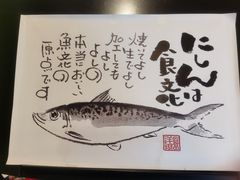 にしんは
食文化
焼いてよし
生でよし
加工しても
よし
よしの
本当においしい
魚文化の
原点です